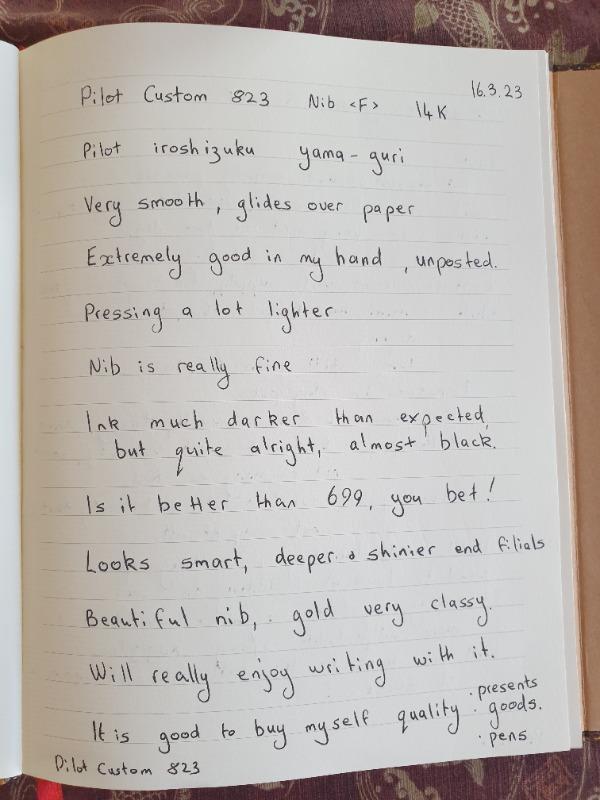 16.3.23
Pilot Custom 823 Nib <F> 14K
Pilot iroshizuku yama-guri
Very smooth, glides over paper
Extremely good in my hand, unposted.
Pressing a lot lighter
Nib is really fine
Ink much darker than expected,
but quite alright, almost black.
Is it better than 699, you bet!
Looks smart, deeper & shinier end filials
Beautiful nib, gold very classy.
Will really enjoy writing with it.
It is good to buy myself quality · presents
· goods.
· pens.
Pilot Custom 823